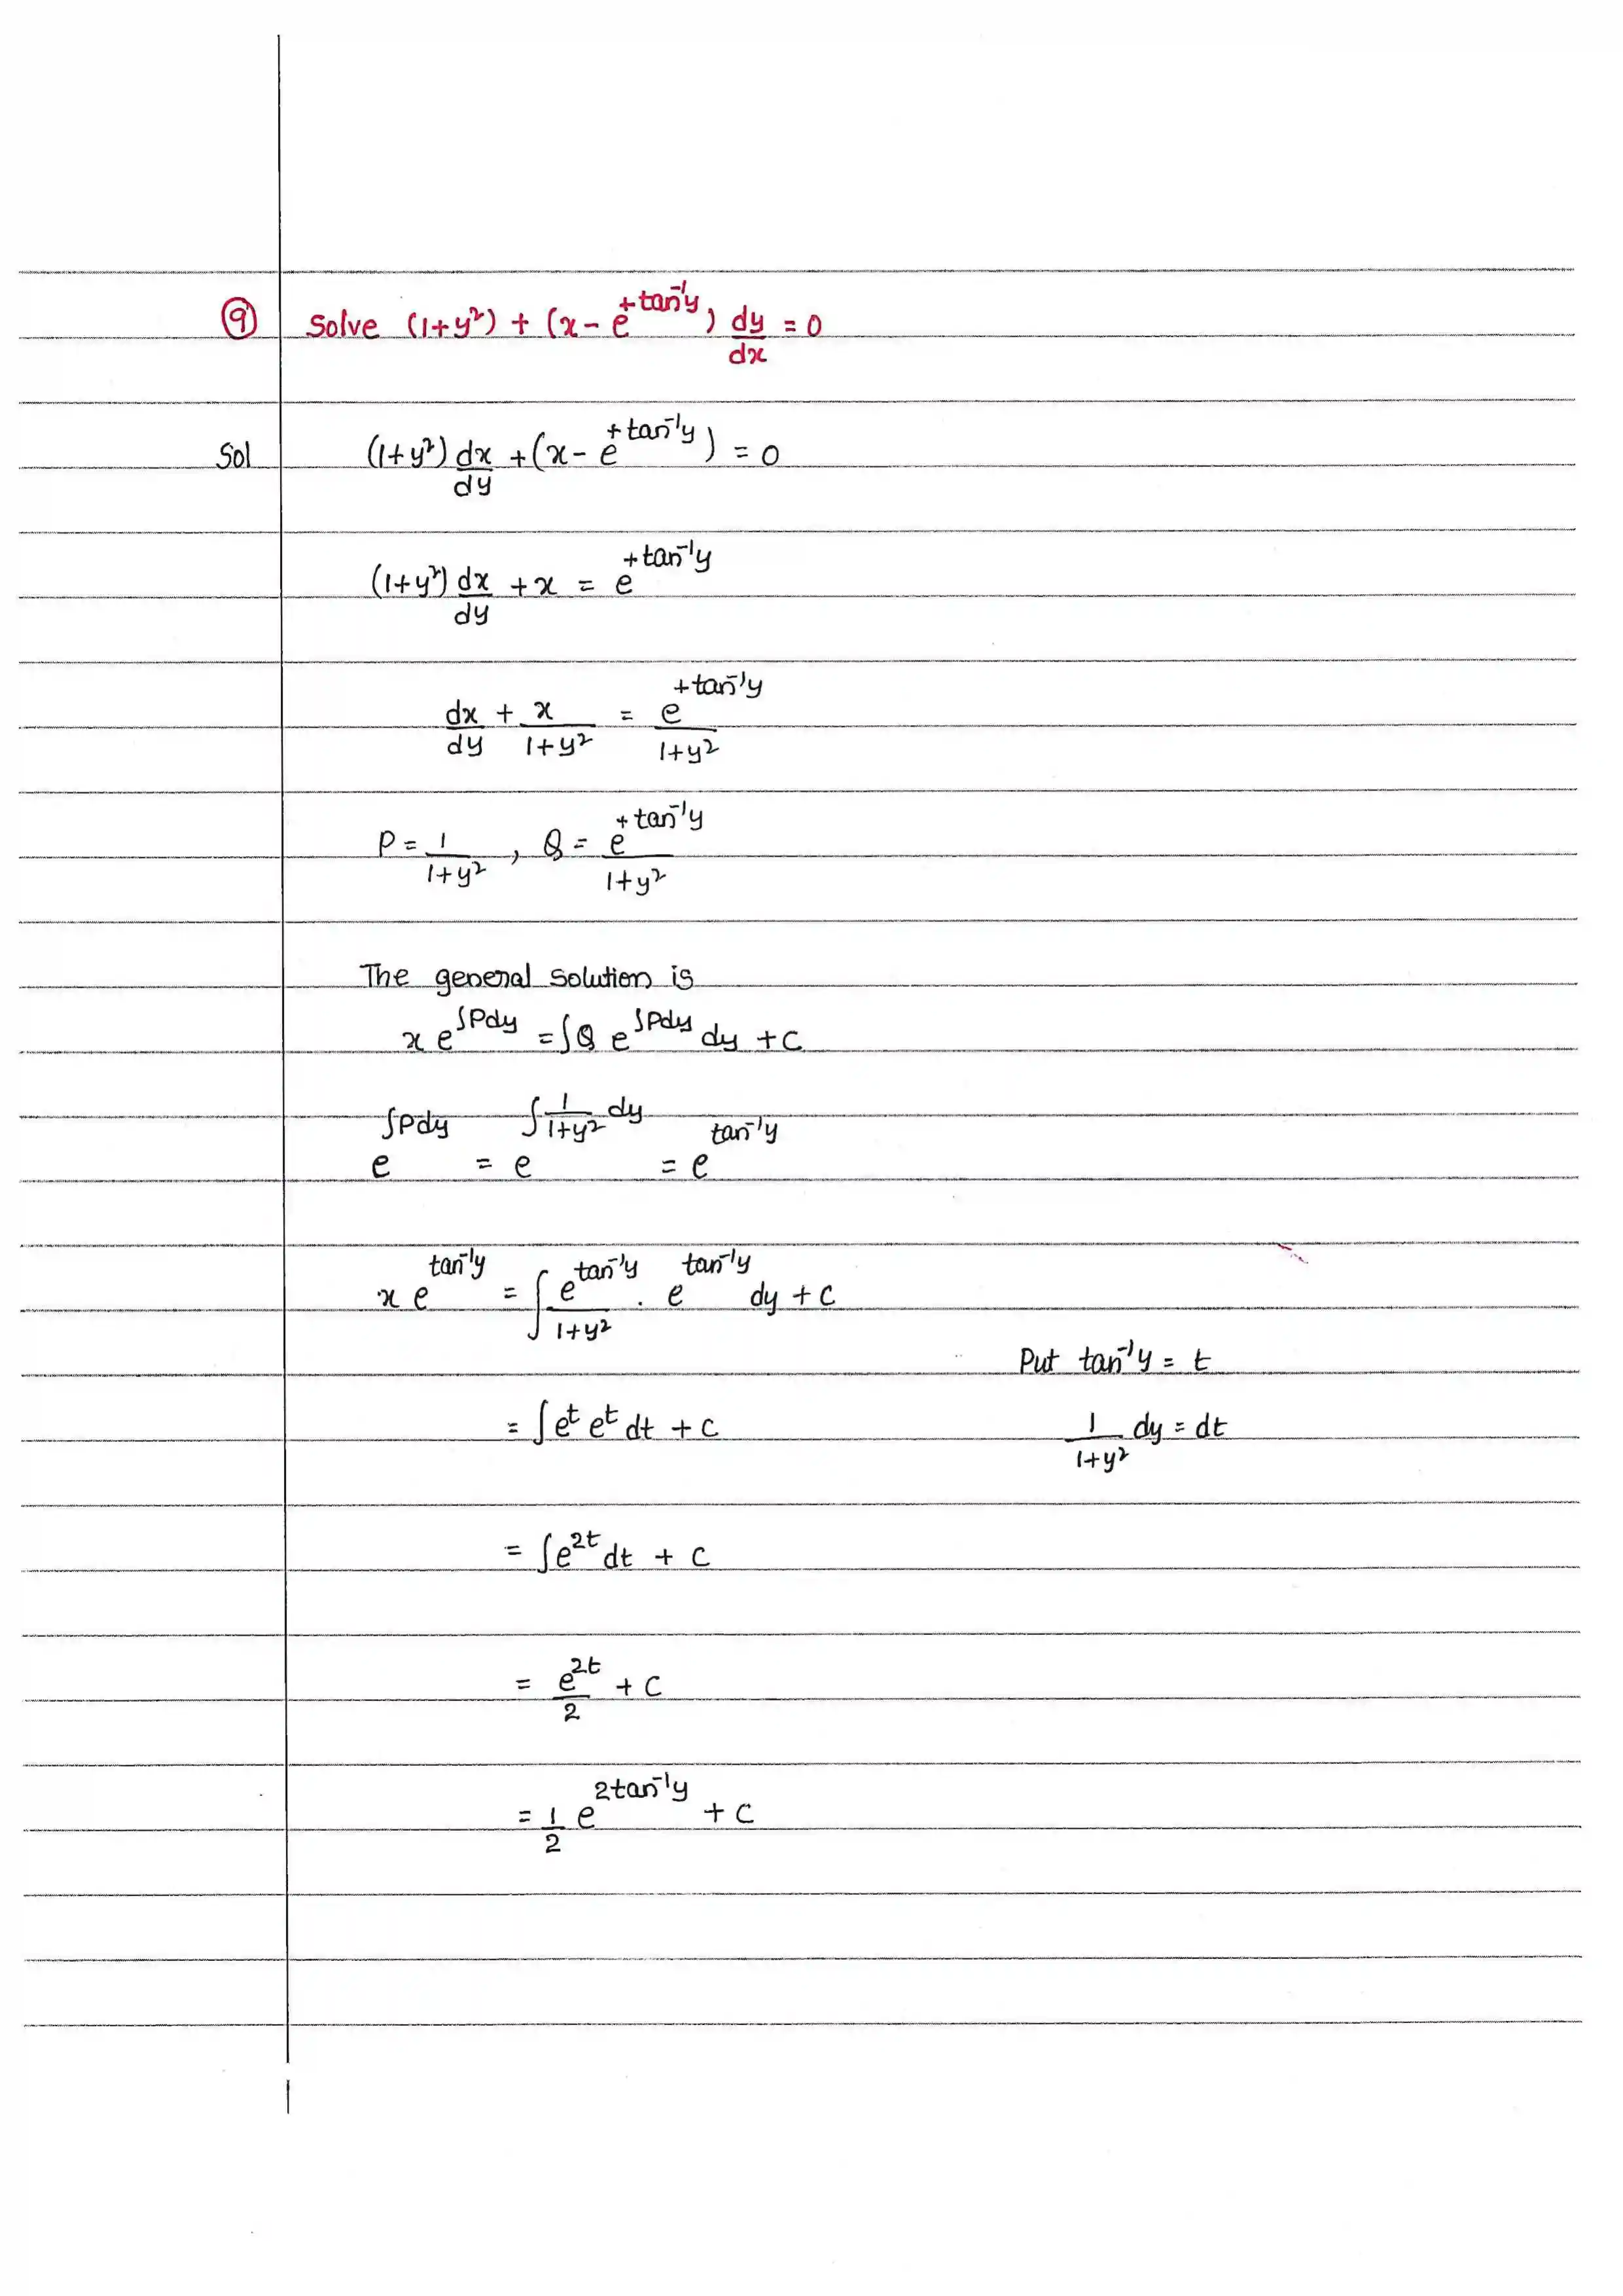 ⑨ Solve (1+y²) + (x - e^{+tan⁻¹y}) dy/dx = 0
Sol (1+y²) dx/dy + (x - e^{+tan⁻¹y}) = 0
(1+y²) dx/dy + x = e^{+tan⁻¹y}
dx/dy + x/(1+y²) = e^{+tan⁻¹y}/(1+y²)
P = 1/(1+y²) , Q = e^{+tan⁻¹y}/(1+y²)
The general solution is
x e^{∫Pdy} = ∫Q e^{∫Pdy} dy + c
e^{∫Pdy} = e^{∫ 1/(1+y²) dy} = e^{tan⁻¹y}
x e^{tan⁻¹y} = ∫ e^{tan⁻¹y}/(1+y²) . e^{tan⁻¹y} dy + c
Put tan⁻¹y = t
= ∫e^t e^t dt + c
1/(1+y²) dy = dt
= ∫e^{2t} dt + c
= e^{2t}/2 + c
= 1/2 e^{2tan⁻¹y} + c